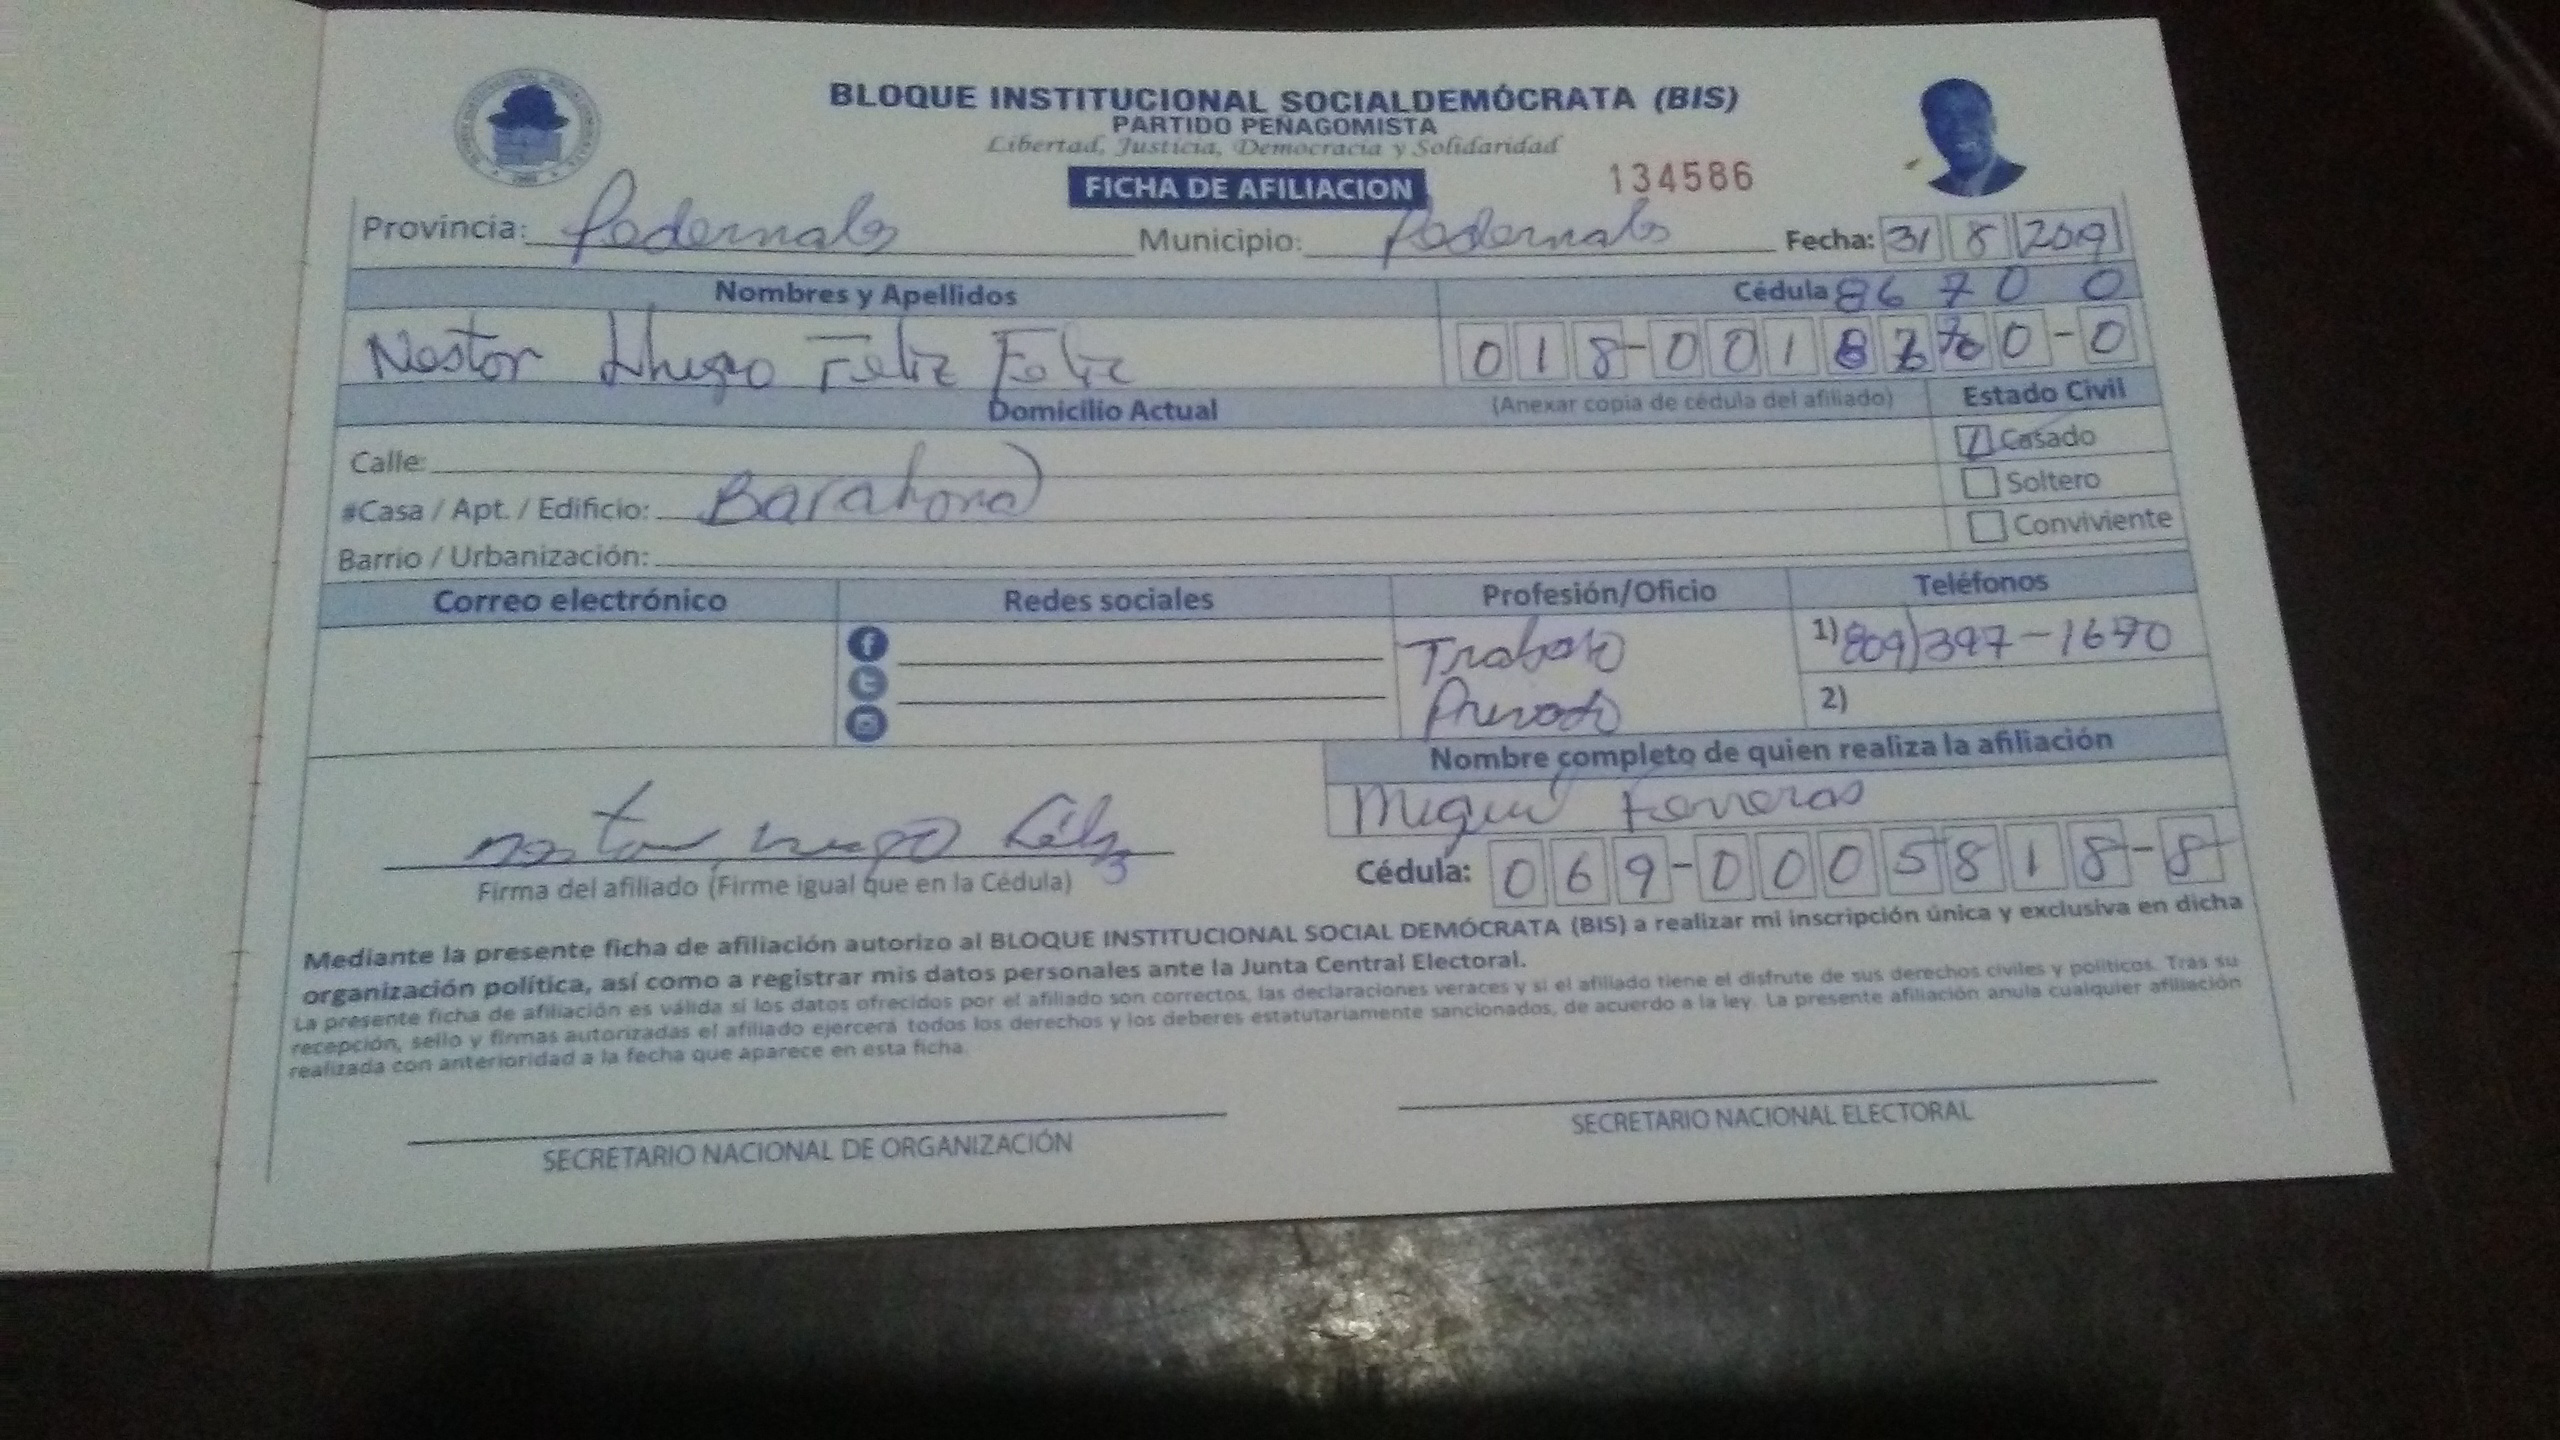 BLOQUE INSTITUCIONAL SOCIALDEMÓCRATA (BIS)
PARTIDO PEÑAGOMISTA
Libertad, Justicia, Democracia y Solidaridad
FICHA DE AFILIACION 134586
Provincia: Pedernales Municipio: Pedernales Fecha: 31 8 2019
Nombres y Apellidos Cédula 86 7 0 0
Nestor Hugo Feliz Feliz 018-001 0-0
Domicilio Actual (Anexar copia de cédula del afiliado) Estado Civil
Calle: Casado
#Casa / Apt. / Edificio: Barahona Soltero
Barrio / Urbanización: Conviviente
Correo electrónico Redes sociales Profesión/Oficio Teléfonos
Trabajo 1) 809) 397-1670
Privado 2)
Nombre completo de quien realiza la afiliación
Miguel Ferreras
nestor hugo Féliz
Firma del afiliado (Firme igual que en la Cédula) Cédula: 069-0005818-8
Mediante la presente ficha de afiliación autorizo al BLOQUE INSTITUCIONAL SOCIAL DEMÓCRATA (BIS) a realizar mi inscripción única y exclusiva en dicha
organización política, así como a registrar mis datos personales ante la Junta Central Electoral.
La presente ficha de afiliación es válida si los datos ofrecidos por el afiliado son correctos, las declaraciones veraces y si el afiliado tiene el disfrute de sus derechos civiles y políticos. Tras su
recepción, sello y firmas autorizadas el afiliado ejercerá todos los derechos y los deberes estatutariamente sancionados, de acuerdo a la ley. La presente afiliación anula cualquier afiliación
realizada con anterioridad a la fecha que aparece en esta ficha.
SECRETARIO NACIONAL DE ORGANIZACIÓN SECRETARIO NACIONAL ELECTORAL